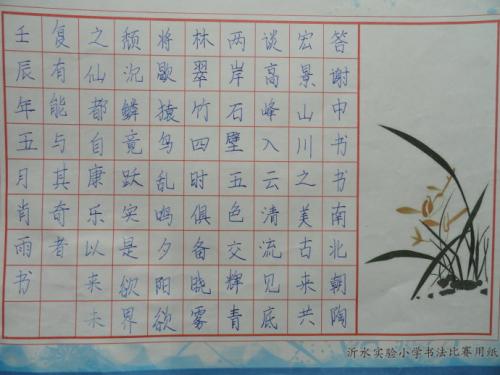 答谢中书书南北朝陶
宏景山川之美古来共
谈高峰入云清流见底
两岸石壁五色交辉青
林翠竹四时俱备晓雾
将歇猿鸟乱鸣夕阳欲
颓沉鳞竟跃实是欲界
之仙都自康乐以来未
复有能与其奇者
壬辰年五月肖雨书
沂水实验小学书法比赛用纸